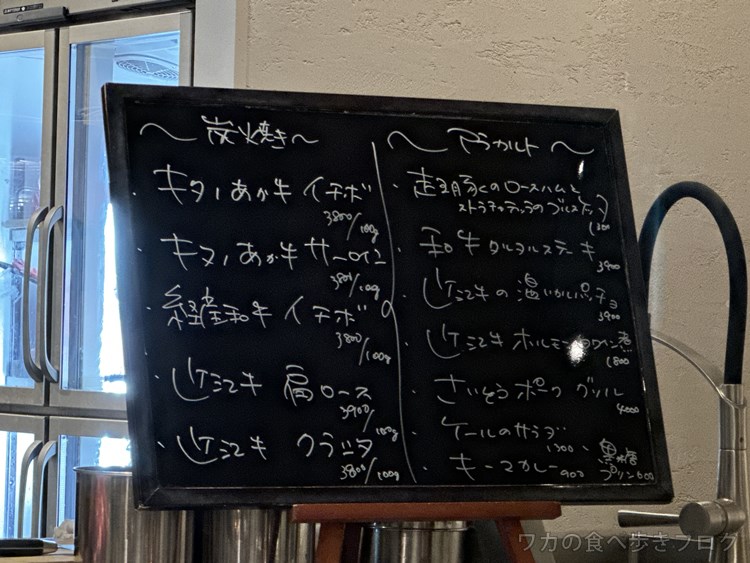 〜炭火焼き〜
・キタノあか牛 イチボ
3800/100g
・キタノあか牛 サーロイン
/100g
・経産和牛 イチボ
3800/100g
・山ケミ牛 肩ロース
3900/100g
・山ケミ牛 クラシタ
3800/100g
〜アラカルト〜
・のロースハムと
ストラチャテッラのブルスケッタ
・和牛タルタルステーキ
3900
の温いカルパッチョ
3900
ホルモン 煮
1800
・さいとうポーク グリル
4000
・ケールのサラダ
1300
・キーマカレー 900
・黒糖
プリン 600
ワカの食べ歩きブログ